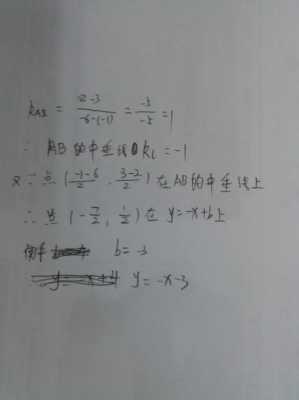 k_AB = \frac{-2-3}{-6-(-1)} = \frac{-5}{-5} = 1
∴ AB的中垂线的k_L = -1
又∵点(\frac{-1-6}{2}, \frac{3-2}{2})在AB的中垂线上
∴点(-\frac{7}{2}, \frac{1}{2})在 y=-x+b上
解得 b=-3
y=-x-3